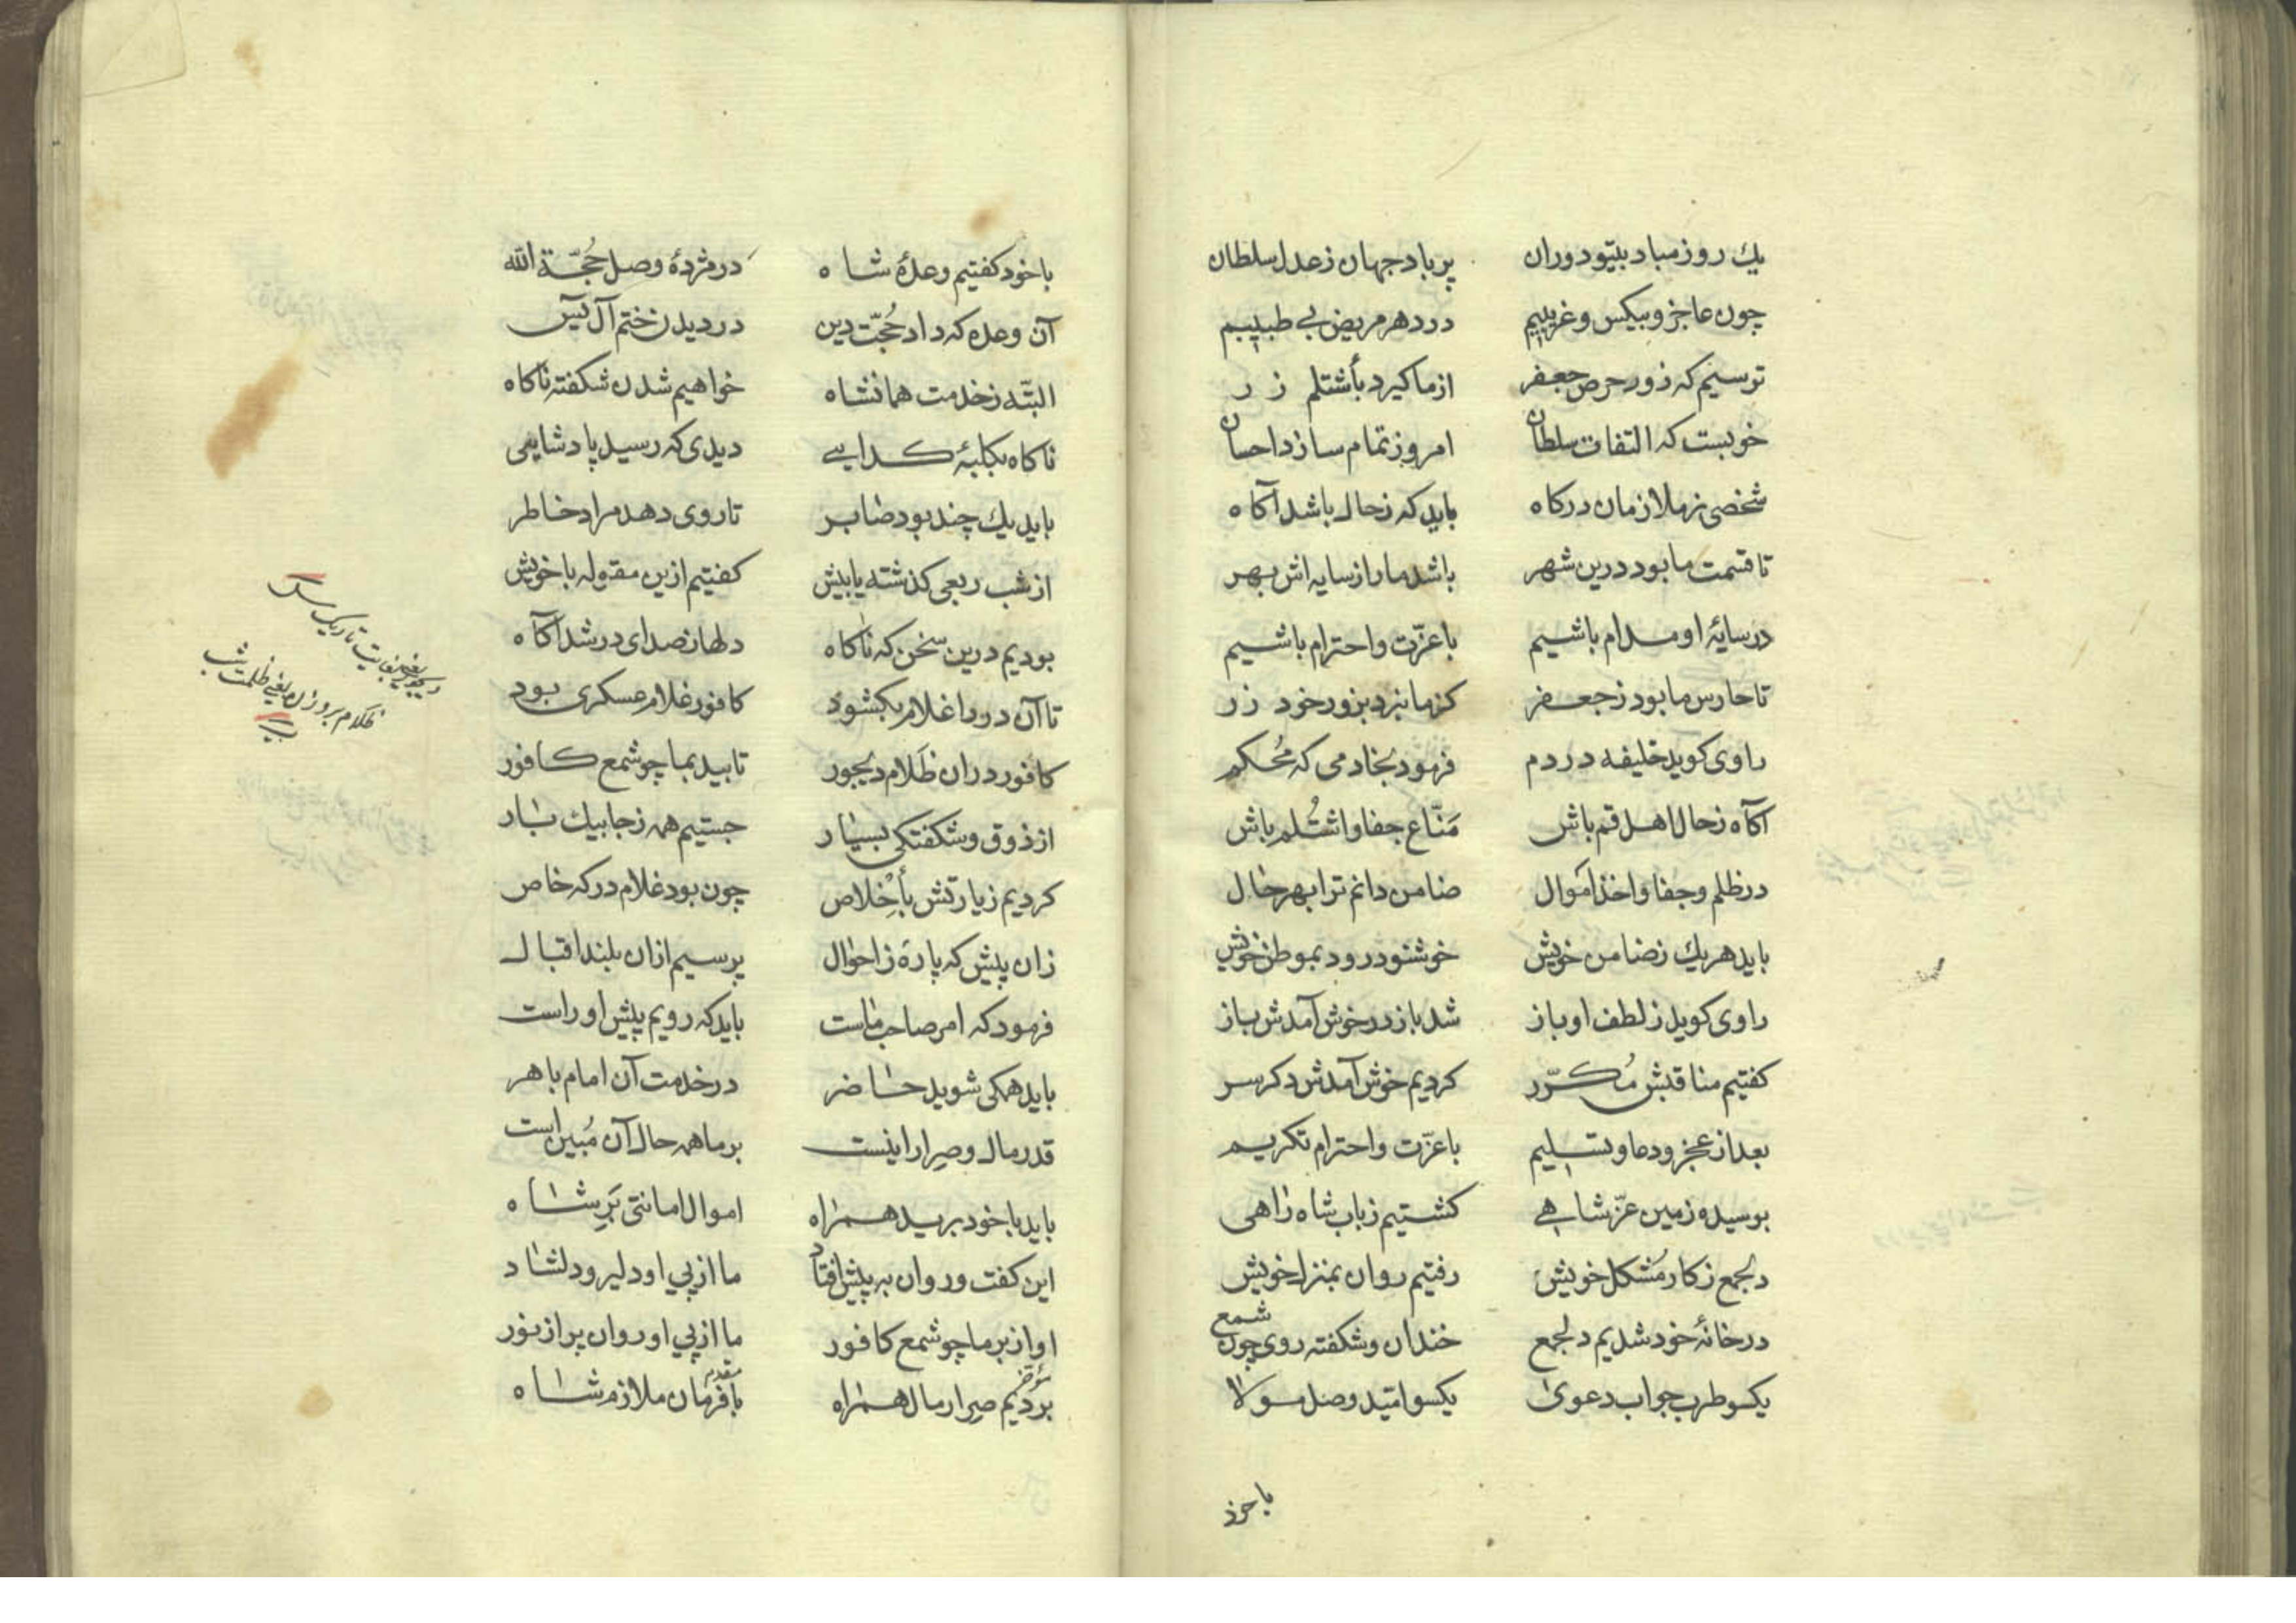 يك روز مباد بيتو دوران پر باد جهان ز عدل سلطان
چون عاجز و بيكس و غريبيم در دهر مريض بي طبيبيم
ترسيم كه زور حرص جعفر از ما كيرد بأشتلم زر
خوبست كه التفات سلطان امروز تمام سازد احسان
شخصى ز ملازمان دركاه بايد كه ز حال باشد آكاه
تا قسمت ما بود درين شهر باشد ما را ز سايه اش بهر
در سايۀ او مدام باشيم با عزّت و احترام باشيم
تا حارس ما بود ز جعفر كز ما نبرد بزور خود زر
راوى كويد خليفه در دم فرمود بخادمى كه مُحكم
آكاه ز حال اهل قم باش مَنّاع جفا و اشتُلم باش
در ظلم و جفا و اخذ اموال ضامن دانم ترا بهر حال
بايد هر يك ز ضامن خويش خوشنود رود بموطن خويش
راوى كويد ز لطف او باز شد باز در خوش آمدش باز
كفتيم مناقبش مُكرّر كرديم خوش آمدش دكر سر
بعد از عجز و دعا و تسليم با عزّت و احترام تكريم
بوسيده زمين عزّ شاهي كشتيم ز باب شاه راهى
دلجمع ز كار مُشكل خويش رفتيم روان بمنزل خويش
در خانۀ خود شديم دلجمع خندان و شكفته روى چون شمع
يكسو طرب جواب دعوى يكسو اميّد وصل مولا
با خود
با خود كفتيم وعدۀ شاه در مژدۀ وصل حُجّة الله
آن وعده كه داد حُجّت دين در ديدن ختم آل يس
البتّه ز خدمت همانشاه خواهيم شدن شكفته ناكاه
ناكاه بكلبۀ كدايى ديدى كه رسيد پادشايى
بايد يك چند بود صابر تا روى دهد مراد خاطر
از شب ربعى كذشته يا بيش كفتيم ازين مقوله با خويش
بوديم درين سخن كه ناكاه دلها ز صداى در شد آكاه
تا آن در را غلام بكشود كافور غلام عسكرى بود
كافور در ان ظَلام ديجور تابيد بما چو شمع كافور
از ذوق و شكفتكى بسيار جستيم همه ز جا بيك بار
كرديم زيارتش بأخلاص چون بود غلام دركه خاص
زان پيش كه پارۀ ز احوال پرسيم از ان بلند اقبال
فرمود كه امر صاحب ماست بايد كه رويم پيش او راست
بايد همكى شويد حاضر در خدمت آن امام باهر
قدر مال و صرار را نيست بر ما همه حال آن مُبين است
بايد با خود بريد همراه اموال امانتى بَرِ شاه
اين كفت و روان به پيش افتاد ما از پي او دلير و دلشاد
او از بر ما چو شمع كافور ما از پي او روان پر از نور
مؤخر برديم صرار مال همراه مقدم با فرمان ملازم شاه
ديجور يعنى بغايت تاريك
ظلام بروزن يعنى ظلمت شب